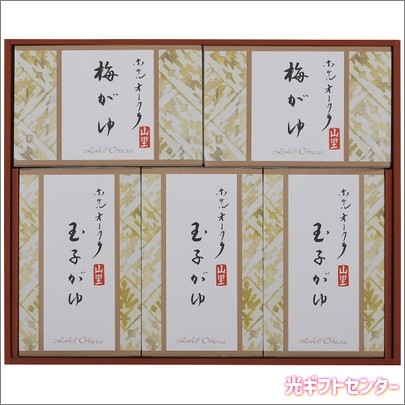 ホテルオークラ
山里
梅がゆ
Hotel Okura
ホテルオークラ
山里
梅がゆ
Hotel Okura
ホテルオークラ
山里
玉子がゆ
Hotel Okura
ホテルオークラ
山里
玉子がゆ
Hotel Okura
ホテルオークラ
山里
玉子がゆ
Hotel Okura
光ギフトセンター